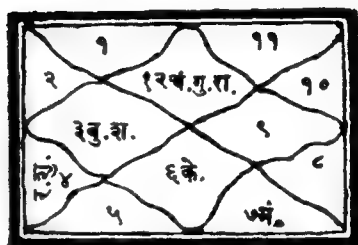 १ ११
२ १२ चं. गु. रा. १०
३ बु. श. ९
४ ६ के. ८
५ ७ मं.